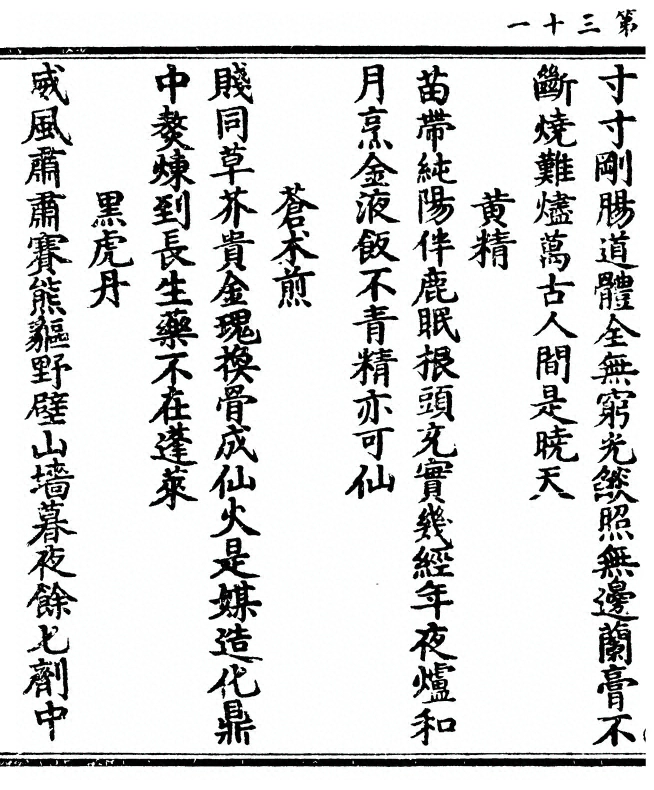 第三十一
寸寸剛腸道體全無窮光燄照無邊蘭膏不
斷燒難燼萬古人間是曉天
黃精
苗帶純陽伴鹿眠根頭充實幾經年夜爐和
月烹金液飯不青精亦可仙
蒼朮煎
賤同草芥貴金瑰換骨成仙火是媒造化鼎
中熬煉到長生藥不在蓬萊
黑虎丹
威風肅肅賽熊貙野壁山墻暮夜餘七劑中